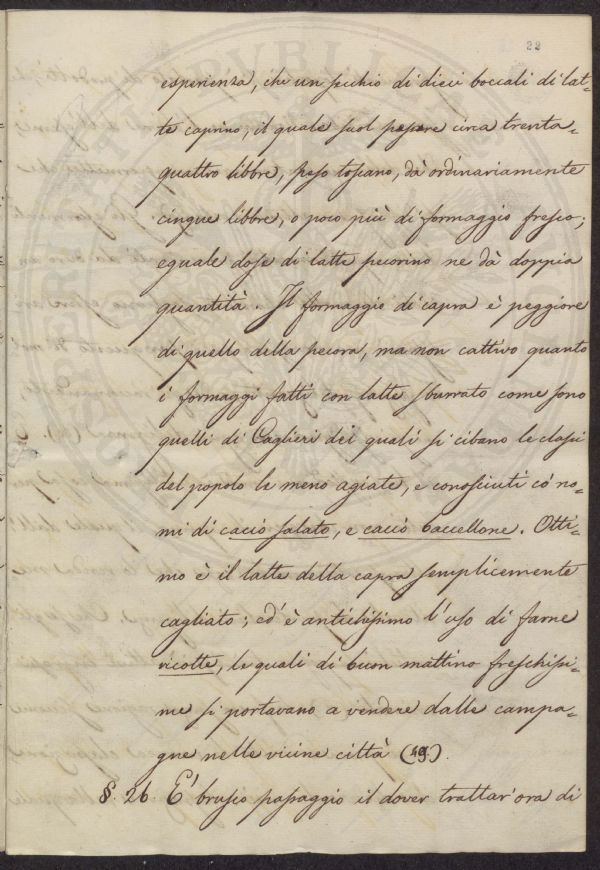 22
esperienza, che un secchio di dieci boccali di lat-
te caprino, il quale suol pesare circa trenta-
quattro libbre, peso toscano, dà ordinariamente
cinque libbre, o poco più di formaggio fresco;
eguale dose di latte pecorino ne dà doppia
quantità. Il formaggio di capra è peggiore
di quello della pecora, ma non cattivo quanto
i formaggi fatti con latte sburrato come sono
quelli di Caglieri dei quali si cibano le classi
del popolo le meno agiate, e conosciuti co' no-
mi di caccio salato, e caccio baccellone. Otti-
mo è il latte della capra semplicemente
cagliato; ed è antichissimo l'uso di farne
ricotte, le quali di buon mattino freschissi-
me si portavano a vendere dalle campa-
gne nelle vicine città (49.).
§. 26. E' brusco passaggio il dover trattar' ora di